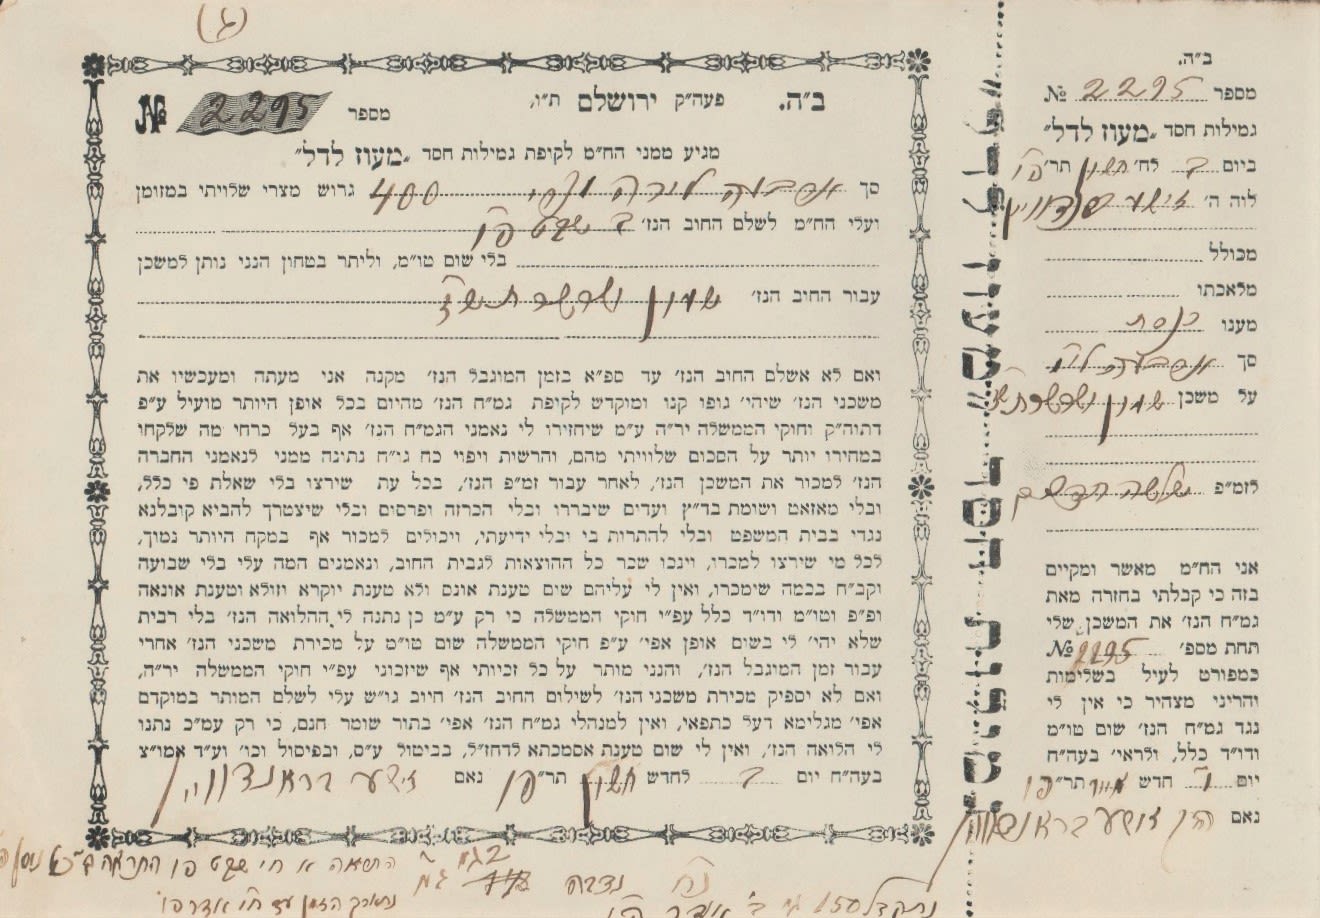 (ג)
ב״ה. פעה״ק ירושלם ת״ו,
מספר 2295 №
מגיע ממני הח״מ לקופת גמילות חסד „מעוז לדל״
סך ארבעה לירה 400 גרוש מצרי שלויתי במזומן
ועלי הח״מ לשלם החוב הנז׳ ב שבט פ״ו
בלי שום טו״מ, וליתר בטחון הנני נותן למשכן
עבור החיב הנז׳ שעון ושרשרת
ואם לא אשלם החוב הנז׳ עד ספ״א בזמן המוגבל הנז׳ מקנה אני מעתה ומעכשיו את
משכני הנז׳ שיהי׳ גופו קנו ומוקדש לקופת גמ״ח הנז׳ מהיום בכל אופן היותר מועיל ע״פ
דתוה״ק וחוקי הממשלה יר״ה ע״מ שיחזירו לי נאמני הגמ״ח הנז׳ אף בעל כרחי מה שלקחו
במחירו יותר על הסכום שלוויתי מהם, והרשות ויפוי כח גי״ח נתינה ממני לנאמני החברה
הנז׳ למכור את המשכן הנז׳, לאחר עבור זמ״פ הנז׳, בכל עת שירצו בלי שאלת פי כלל,
ובלי מאזאט ושומת בד״ץ ועדים שיבררו ובלי הכרזה ופרסים ובלי שיצטרך להביא קובלנא
נגדי בבית המשפט ובלי להתרות בי ובלי ידיעתי, ויכולים למכור אף במקח היותר נמוך,
לכל מי שירצו למכרו, וינכו שכר כל ההוצאות לגבית החוב, ונאמנים המה עלי בלי שבועה
וקב״ח בכמה שימכרו, ואין לי עליהם שום טענת אונס ולא טענת יוקרא וזולא וטענת אונאה
ופ״פ וטו״מ ודו״ד כלל עפ״י חוקי הממשלה כי רק ע״מ כן נתנה לי ההלואה הנז׳ בלי רבית
שלא יהי׳ לי בשום אופן אפי׳ ע״פ חוקי הממשלה שום טו״מ על מכירת משכני הנז׳ אחרי
עבור זמן המוגבל הנז׳, והנני מותר על כל זכיותי אף שיזכוני עפ״י חוקי הממשלה יר״ה,
ואם לא יספיק מכירת משכני הנז׳ לשילום החוב הנז׳ חיוב גו״ש עלי לשלם המותר במוקדם
אפי׳ מגלימא דעל כתפאי, ואין למנהלי גמ״ח הנז׳ אפי׳ בתור שומר חנם, כי רק עמ״כ נתנו
לי הלואה הנז׳, ואין לי שום טענת אסמכתא לדחז״ל, בביטול ע״ס, ובפיסול וכו׳ וע״ד אמו״צ
בעה״ח יום ב לחדש חשון תר״פו נאם
נדבה
ב״ה.
מספר 2295 №
גמילות חסד „מעוז לדל״
ביום ב לח׳ חשון תר״פו
לוה ה׳
מכולל
מלאכתו
מענו כנסת
סך ארבעה לי׳
על משכן שעון ושרשרת
לזמ״פ שלשה חדשים
אני הח״מ מאשר ומקיים
בזה כי קבלתי בחזרה מאת
גמ״ח הנז׳ את המשכן שלי
תחת מספ׳ 2295 №
כמפורט לעיל בשלימות
והריני מצהיר כי אין לי
נגד גמ״ח הנז׳ שום טו״מ
ודו״ד כלל, ולראי׳ בעה״ח
יום חדש תר״פו
נאם